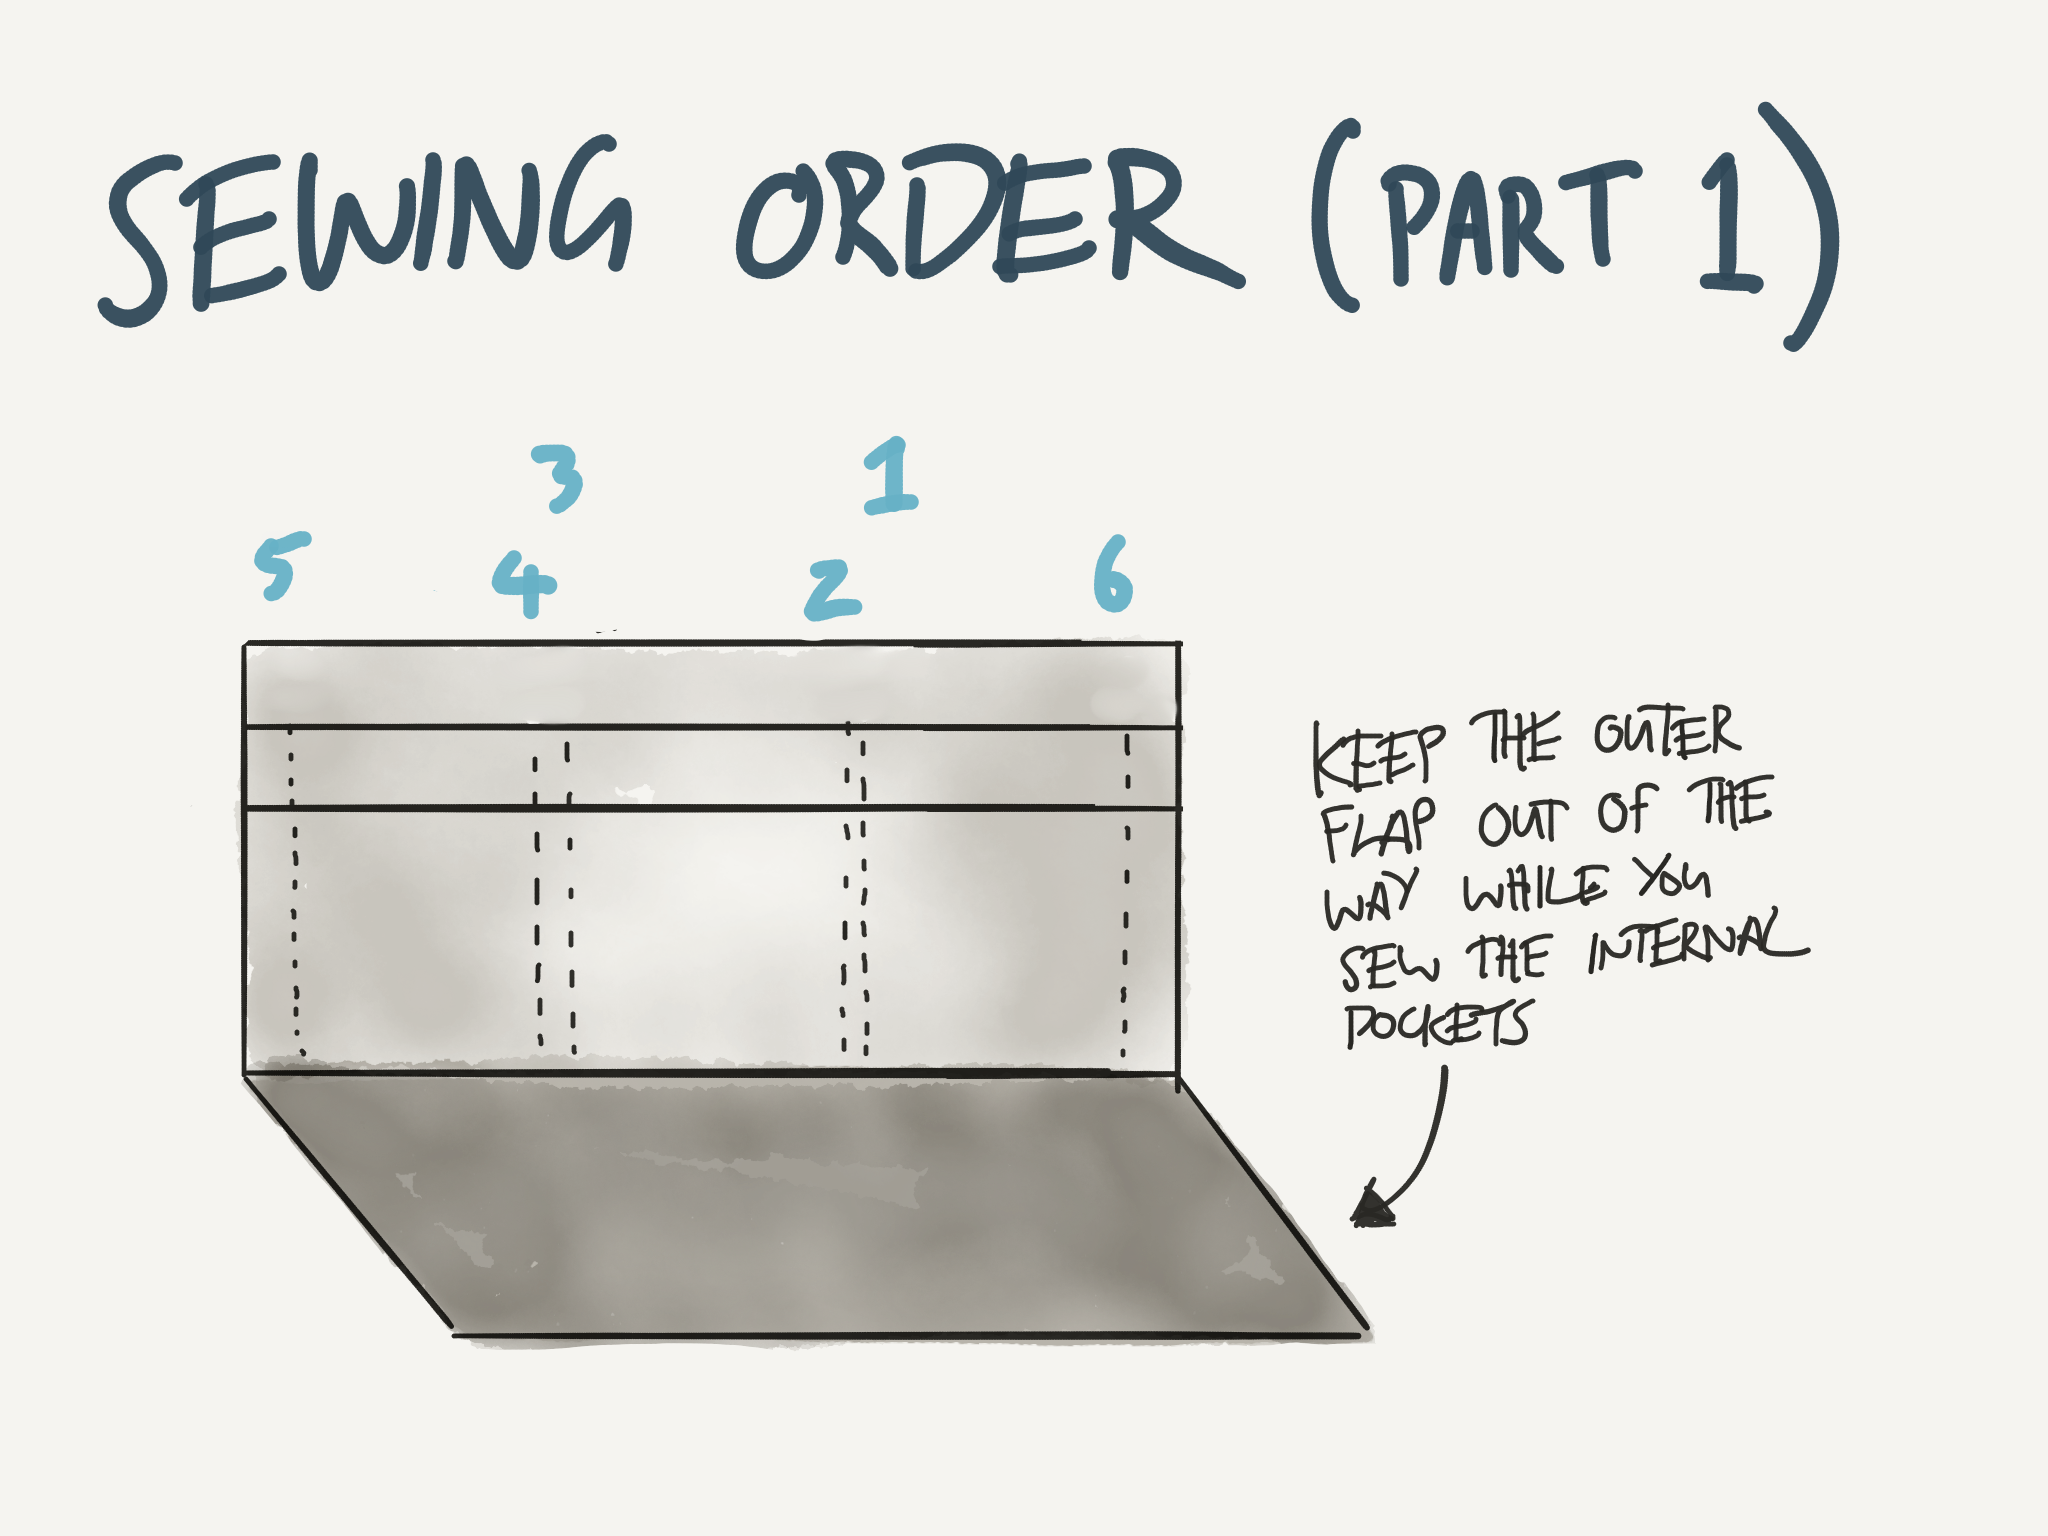 SEWING ORDER (PART 1)
3 1
5 4 2 6
KEEP THE OUTER
FLAP OUT OF THE
WAY WHILE YOU
SEW THE INTERNAL
POCKETS